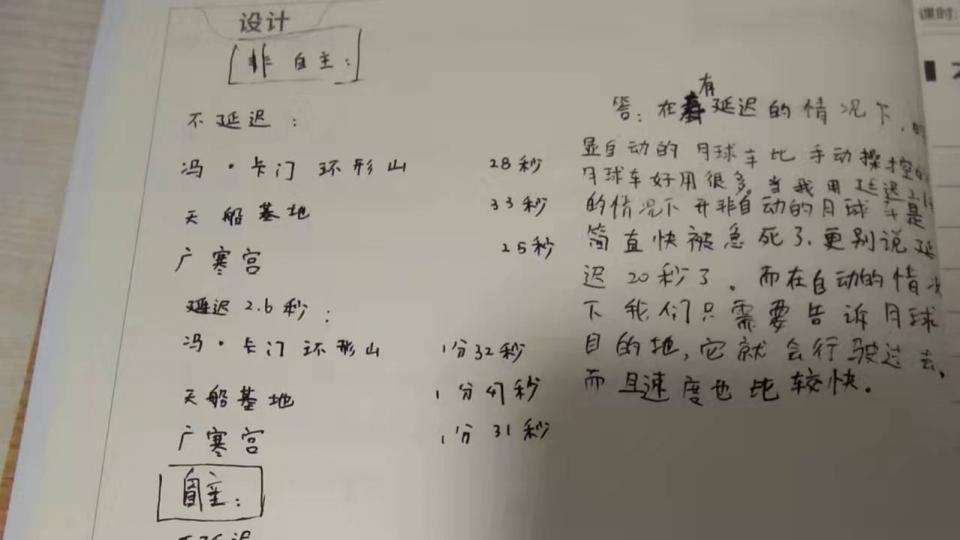 设计
课时:
非自主:
不延迟:
冯·卡门环形山 28秒
天船基地 33秒
广寒宫 25秒
延迟2.6秒:
冯·卡门环形山 1分32秒
天船基地 1分47秒
广寒宫 1分31秒
自主:
答:在有延迟的情况下,
显自动的月球车比手动操控
月球车好用很多。当我用延迟2.
的情况下开非自动的月球车是
简直快被急死了,更别说延
迟20秒了。而在自动的情况
下我们只需要告诉月球
目的地,它就会行驶过去,
而且速度也比较快。